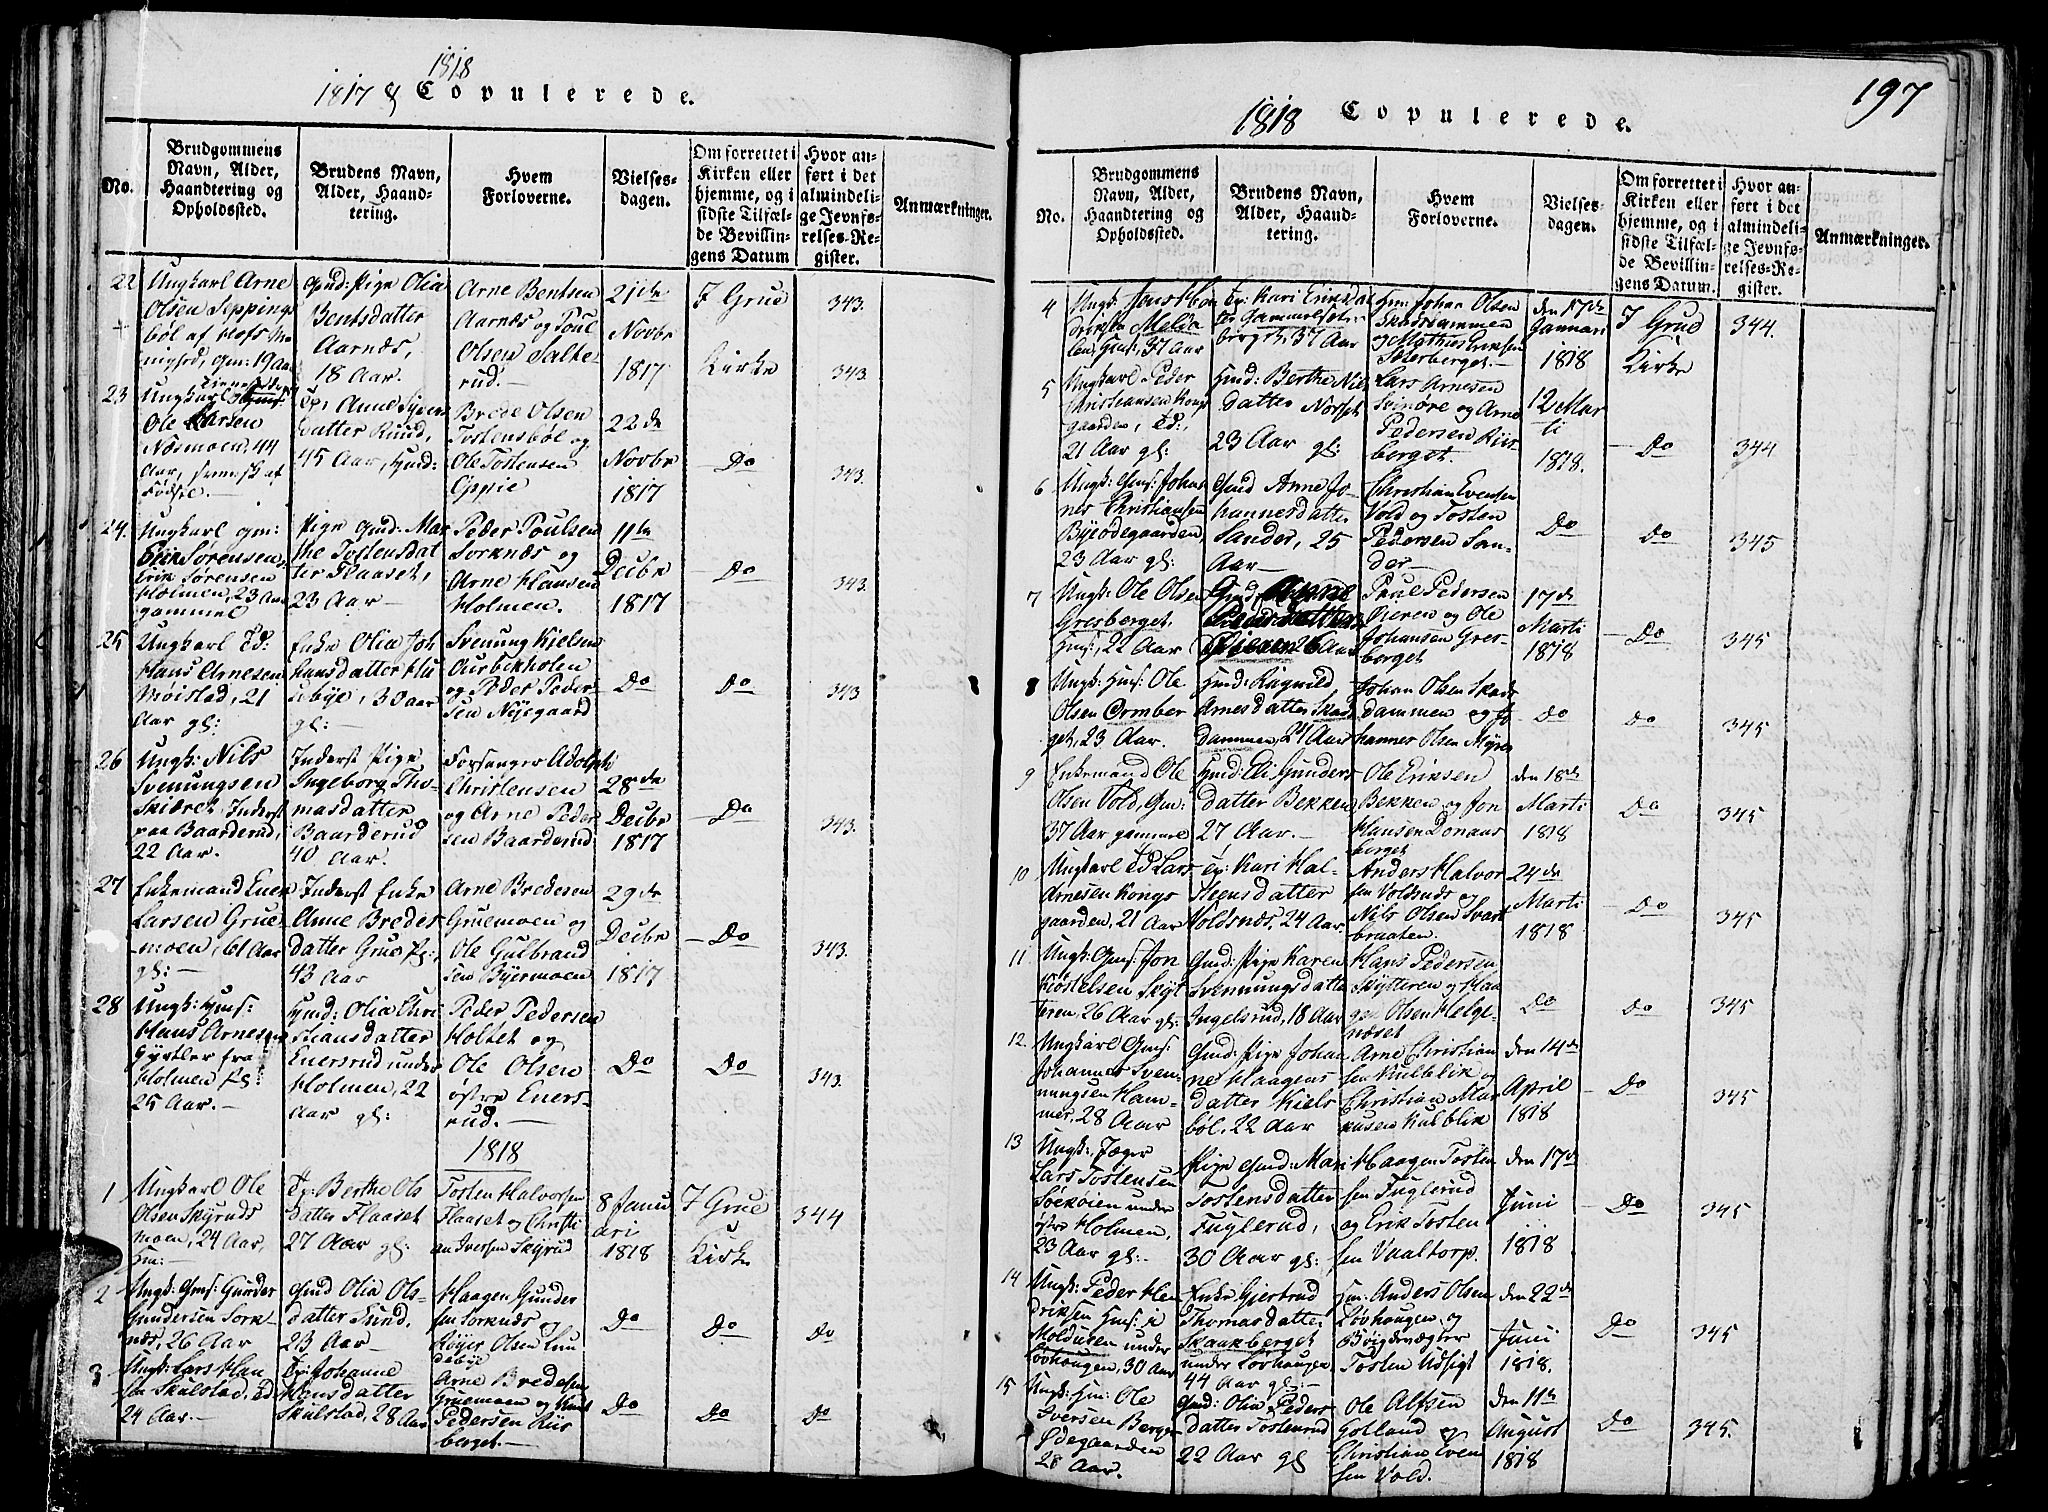 1818
1817 & Copulerede.
No.
Brudgommens
Navn, Alder,
Haandtering og
Opholdssted.
Brudens Navn,
Alder, Haand-
tering.
Hvem
Forloverne.
Vielses-
dagen.
Om forrettet i
Kirken eller
hjemme, og i
sidste Tilfæl-
de Bevillin-
gens Datum
Hvor an-
ført i det
almindeli-
ge Jevnfø-
relses-Re-
gister.
Anmærkninger.
22
Ungkarl Arne
Olsen Seppings
böl af
19 Aar
Gmd: Pige Olia
Bentsdatter
Aarnæs,
18 Aar.
Arne Bentsen
Aarnæs og Poul
Olsen Salte-
rud.
21de
Novbr
1817
I Grue
Kirke
343.
343.
23
Ungkarl
Ole Larsen
Nösmoen, 44
Aar, svensk af
Födsel.
Anne Syvers
datter Ruud,
45 Aar, Hmd:
Brede Olsen
Tostensböl og
Ole Tostensen
Oppie
22de
Novbr
1817
Do
343.
24.
Ungkarl Gm:
Erik Sørensen
Erik Sørensen
Holmen, 23 Aar
gammel
Pige Gmd: Mar
the Tostensdat
ter Flaaset,
23 Aar
Peder Poulsen
Sorknæs og
Arne Hansen
Holmen.
11te
Decbr
1817
Do
343.
25
Ungkarl Ed:
Hans Arnesen
Moistad, 21
Aar gl:
Enke Olia Joh
hansdatter Hu
usbye, 30 Aar
gl:
Svenung Kielsen
Aurbekholen
og Peder Peder-
sen Nyegaard
Do
Do
343
26
Ungk: Nils
Svenungsen
Skiæret Inderst
paa Baarderud,
22 Aar.
Inderst Pige
Ingeborg Tho-
masdatter
Baarderud
40 Aar.
Forsanger Adolph
Christensen
og Arne Peder
sen Baarderud
28de
Decbr
1817
Do
343.
27
Enkemand Ener
Larsen Grue-
moen, 61 Aar
gl:
Inderst Enke
Anne Breder
datter Grue Pg:,
43 Aar
Arne Bredesen
Gruemoen og
Ole Gulbrand
sen Byermoen
29de
Decbr
1817
Do
343.
28
Ungk: Hms:
Hans Arnesen
Gyrtler fra
Holmen Pg:
25 Aar.
Hmd: Olia Chri
stiansdatter
Enersrud under
Holmen, 22
Aar gl:
Peder Pedersen
Holtet og
Ole Olsen
østre Eners-
rud.
Do
Do
343.
1818
1
Ungkarl Ole
Olsen Skyruds
moen, 24 Aar,
Hm:
Ep: Berthe Ols
datter Flaaset
27 Aar gl:
Tosten Halvorsen
Flaaset og Christi
an Iversen Skyrud
8 Janu
ari
1818
I Grue
Kirke
344
2
Ungk: Gms: Gunder
Gundersen Sork-
næs, 26 Aar
Gmd Olia Ols-
datter Sund,
23 Aar
Haagen Gunder
sen Sorknæs og
Röyer Olsen Lun
dsbye
Do
Do
Do
3
Ungk: Lars Han
sen Skulstad, Ed
24 Aar.
Ep: Johanne
Hansdatter
Skulstad, 28 Aar
Arne Bredesen
Gruemoen og Knut
Pedersen Riis
berget.
Do
Do
Do
197
1818 Copulerede.
No.
Brudgommens
Navn, Alder,
Haandtering og
Opholdssted.
Brudens Navn,
Alder, Haand-
tering.
Hvem
Forloverne.
Vielses-
dagen.
Om forrettet i
Kirken eller
hjemme, og i
sidste Tilfæl-
de Bevillin-
gens Datum.
Hvor an-
ført i det
almindeli-
ge Jevnfø-
relses-Re-
gister.
Anmærkninger.
4
Ungk: Jens Hen
driksen Melda
len, Gms:, 37 Aar
Ep: Kari Eriksdat
ter Gammelset
berget, 37 Aar
Hm: Johan Olsen
Skasdammen
og Mathis Eriksen
Seterberget.
den 17de
Januari
1818
I Grue
Kirke
344.
5
Ungkarl Peder
Christiansen Kongs
gaarden, Ed:,
21 Aar gl:
Hmd: Berthe Nils
datter Norset
23 Aar gl:
Lars Arnesen
Svinöre og Arne
Pedersen Riis-
berget.
12 Mar
ti
1818.
Do
344
6
Ungk: Gms: Johan
nes Christiansen
Byeödegaarden,
23 Aar gl:
Gmd Anne Jo-
hannesdatter
Sander, 25
Aar
Christian Evensen
Vold og Tosten
Pedersen San-
der
Do
Do
345
7
Ungk: Ole Olsen
Gresberget,
Hms:, 22 Aar
Gmd: Anne
Pedersdatter
26 Aar
Paul Pedersen
Öieren og Ole
Johansen Gres-
berget
17de
Marti
1818
Do
345
8
Ungk: Hms: Ole
Olsen Ormber
get, 23 Aar.
Hmd: Ragnild
Arnesdatter Skas
dammen, 24 Aar
Johan Olsen Skads
dammen og Jo
hannes Olsen Myre
Do
Do
345
9
Enkemand Ole
Olsen Vold, Gm:
37 Aar gammel
Hmd: Eli Gunders
datter Bekken
27 Aar.
Ole Eriksen
Bekken og Jon
Hansen Donaus
berget
den 18de
Marti
1818
Do
345
10
Ungkarl Ed Lars
Arnesen Kongs
gaarden, 21 Aar
Ep: Kari Hal-
steensdatter
Voldsnæs, 24 Aar.
Anders Halvor
sen Voldsnæs og
Nils Olsen Svart
braaten.
24de
Marti
1818
Do
345
11
Ungk: Gms: Jon
Kostelsen Skyt
teren, 26 Aar gl:
Gmd: Pige Karen
Svenningsdatter
Ingelsrud, 18 Aar
Hans Pedersen
Skytteren og Haa
gen Olsen Helge-
næset
Do
Do
345
12
Ungkarl Gms:
Johannes Sven-
nungsen Ham-
mer, 28 Aar
Gmd: Pige Johan
ne Haagens
datter Kiels
böl, 22 Aar
Arne Christian
sen Kulblik og
Christian Mar
kusen Kulblik
den 14de
April
1818
Do
345
13
Ungk: Jæger
Lars Tostensen
Söeköien under
östre Holmen,
23 Aar gl:
Pige Gmd: Mari
Tostensdatter
Fuglerud,
30 Aar gl:
Haagen Tosten
sen Fuglerud
og Erik Tosten
sen Vaaltorp.
den 17de
Juni
1818
Do
345
14
Ungk: Peder Hen
driksen Hms: i
Molduren under
Lövhaugen, 30 Aar
Enke Gjertrud
Thomasdatter
Skaakberget
under Lövhaugen
44 Aar gl:
Hm: Anders Olsen
Lövhaugen og
Böigdevægter
Tosten Udsigt
den 22de
Juni
1818.
Do
345
15
Ungk: Hm: Ole
Iversen Berger
Ødegaarden
28 Aar.
Gmd: Olia Peders
datter Tostenrud
22 Aar gl
Ole Alfsen
Golland og
Christian Even
sen Vold.
den 11te
August
1818
Do
345.